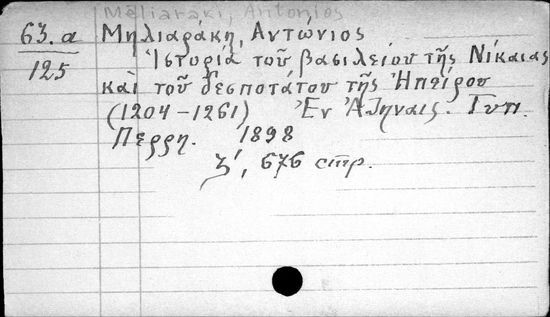 Meliaraki, Antonios
63. a Μηλιαράκη, Αντώνιος
125 Ἱστορία τοῦ βασιλείου τῆς Νίκαιας
καὶ τοῦ δεσποτάτου τῆς Ηπείρου
(1204-1261) Ἐν Ἀθήναις. Τυπ.
Περρη. 1898
ζ', 676 стр.